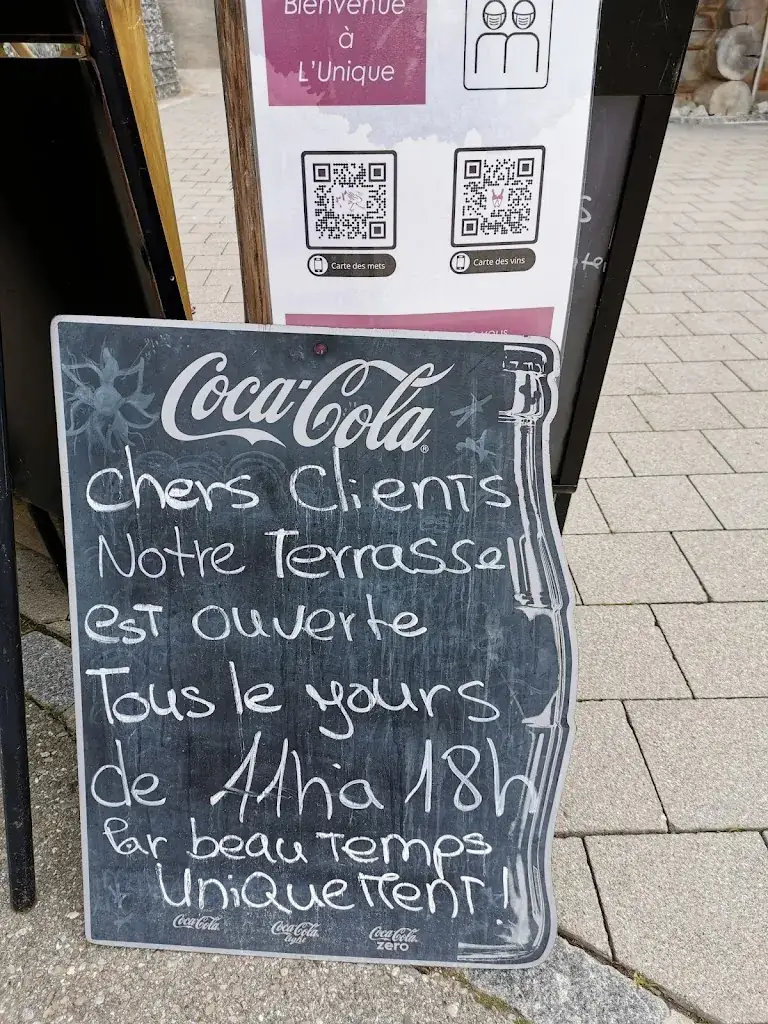 Bienvenue
à
L'Unique
Carte des mets
Carte des vins
Coca-Cola
chers clients
Notre Terrasse
est ouverte
Tous le yours
de 11h à 18h
Par beau temps
uniquement!
Coca-Cola
Coca-Cola light
Coca-Cola zero